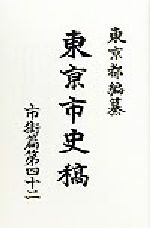 東京都編纂
東京市史稿
市街篇第四十二